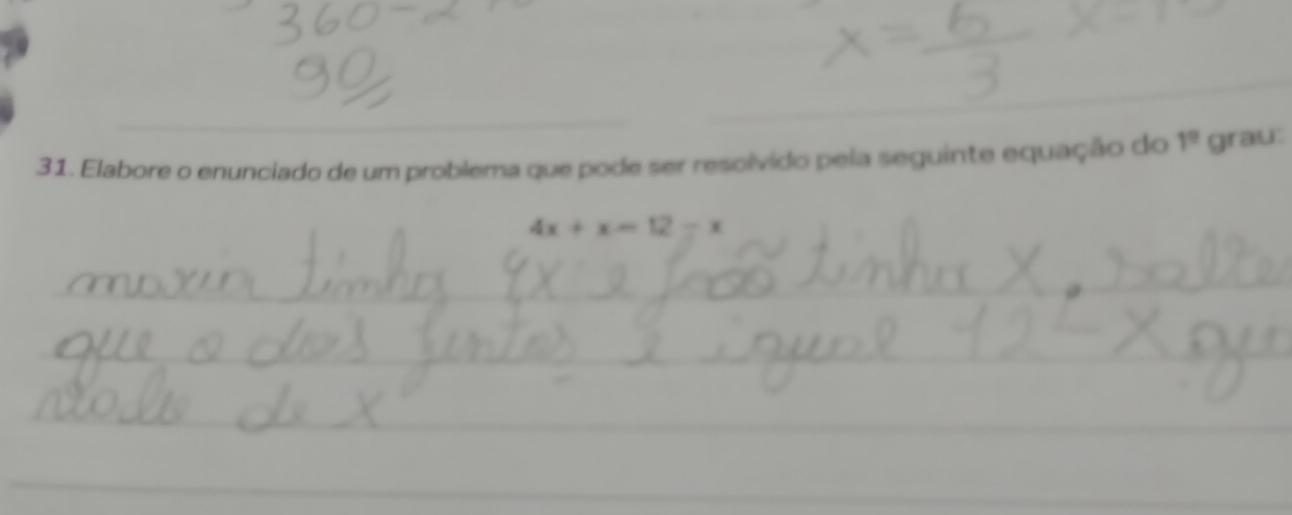 360-2
90
x = 6/3 x=1
31. Elabore o enunciado de um problema que pode ser resolvido pela seguinte equação do 1º grau:
4x + x = 12 - x
maria tinha 4x e João tinha x,
que o dois juntos é igual 12 - x
de x